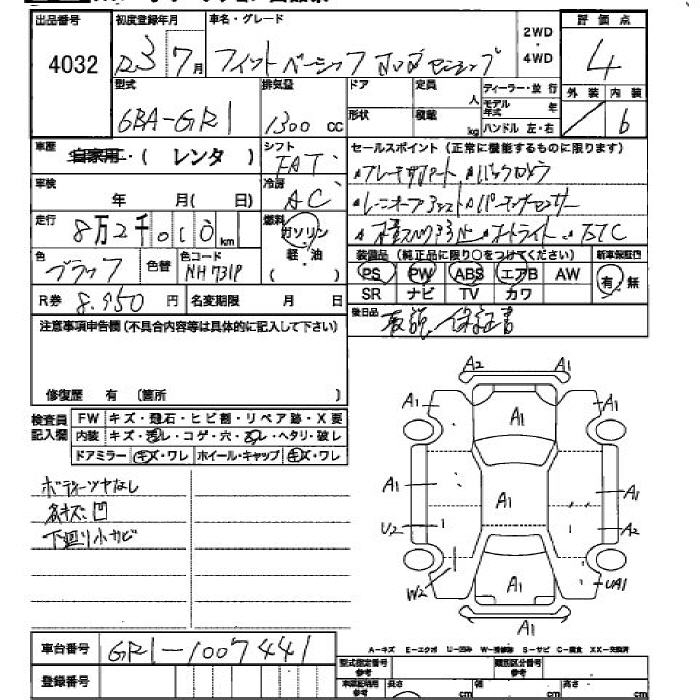 出品番号 初度登録年月 車名・グレード 2WD・4WD 評価点
4032 R3 7月 フィット ベーシック ホンダセンシング 4
型式 排気量 ドア 定員 人 ディーラー・並行 外装 内装
6BA-GR1 1300 CC 形状 積載 kg モデル年式 年 ハンドル 左・右 6
車歴 自家用・( レンタ ) シフト FAT セールスポイント(正常に機能するものに限ります)
車検 年 月( 日) 冷房 AC
走行 8万2千010km 燃料 ガソリン 軽・油 ( )
オートライト ETC
色 ブラック 色替 色コード NH731P
装備品(純正品に限り○をつけてください) 新車保証書
PS PW ABS エアB AW 有・無
SR ナビ TV カワ
R券 8.950円 名変期限 月 日 後日品 取説、保証書
注意事項申告欄(不具合内容等は具体的に記入して下さい)
修復歴 有 〔箇所 〕
検査員記入欄 FW キズ・飛石・ヒビ割・リペア跡・X要
内装 キズ・汚レ・コゲ・穴・スレ・ヘタリ・破レ
ドアミラー キズ・ワレ ホイール・キャップ キズ・ワレ
ボディーツヤなし
各キズ凹
下廻り小サビ
A2 A1
A1 A1 A1
A1 A1 A1
U2 A2
W2 A1 UA1
A1
車台番号 GR1-1007441
A-キズ E-エクボ U-凹み W-補修跡 S-サビ C-腐食 XX-交換済
登録番号 型式指定番号 参考 類別区分番号
車庫証明用 参考 長さ cm 幅 cm 高さ cm